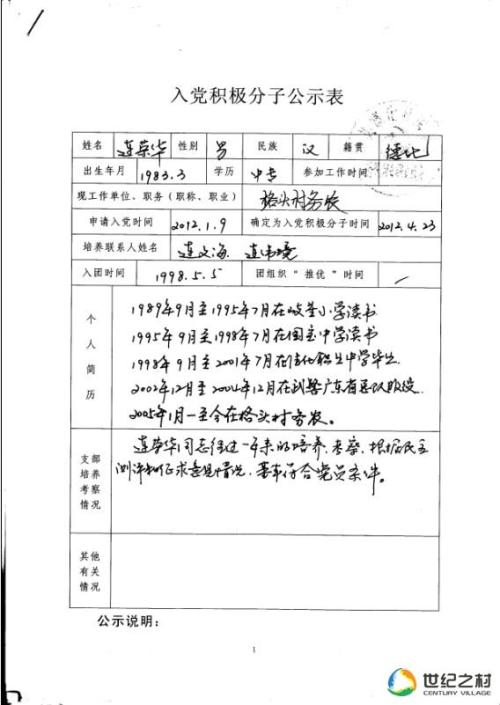 入党积极分子公示表
姓名 连荣华 性别 男 民族 汉 籍贯 德化
出生年月 1983.3 学历 中专 参加工作时间
现工作单位、职务（职称、职业） 格头村务农
申请入党时间 2012.1.9 确定为入党积极分子时间 2012.4.23
培养联系人姓名 连文海 连
入团时间 1998.5.5 团组织“推优”时间 /
个人简历
1989年9月至1995年7月在岐基小学读书
1995年9月至1998年7月在国宝中学读书
1998年9月至2001年7月在德化职业中学毕业
2002年12月至2004年12月在 广东省 服役
2005年1月一至今在格头村务农。
支部培养考察情况
连荣华同志经过一年来的培养、考察，根据民主
测评和征求意见情况，基本符合党员条件。
其他有关情况
公示说明：
1
世纪之村
CENTURY VILLAGE